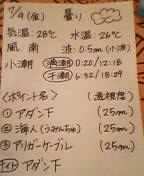 7/9(金) 曇り
気温:28℃ 水温:26℃
風 南 波:0.5mm(小波)
小潮 満潮 0:20/12:18
干潮 6:32/18:29
<ポイント名> (透視度)
① アダン下 (25m)
② 海人(うみんちゅ) (25m)
③ アリガーケーブル (25m)
ナイト アダン下